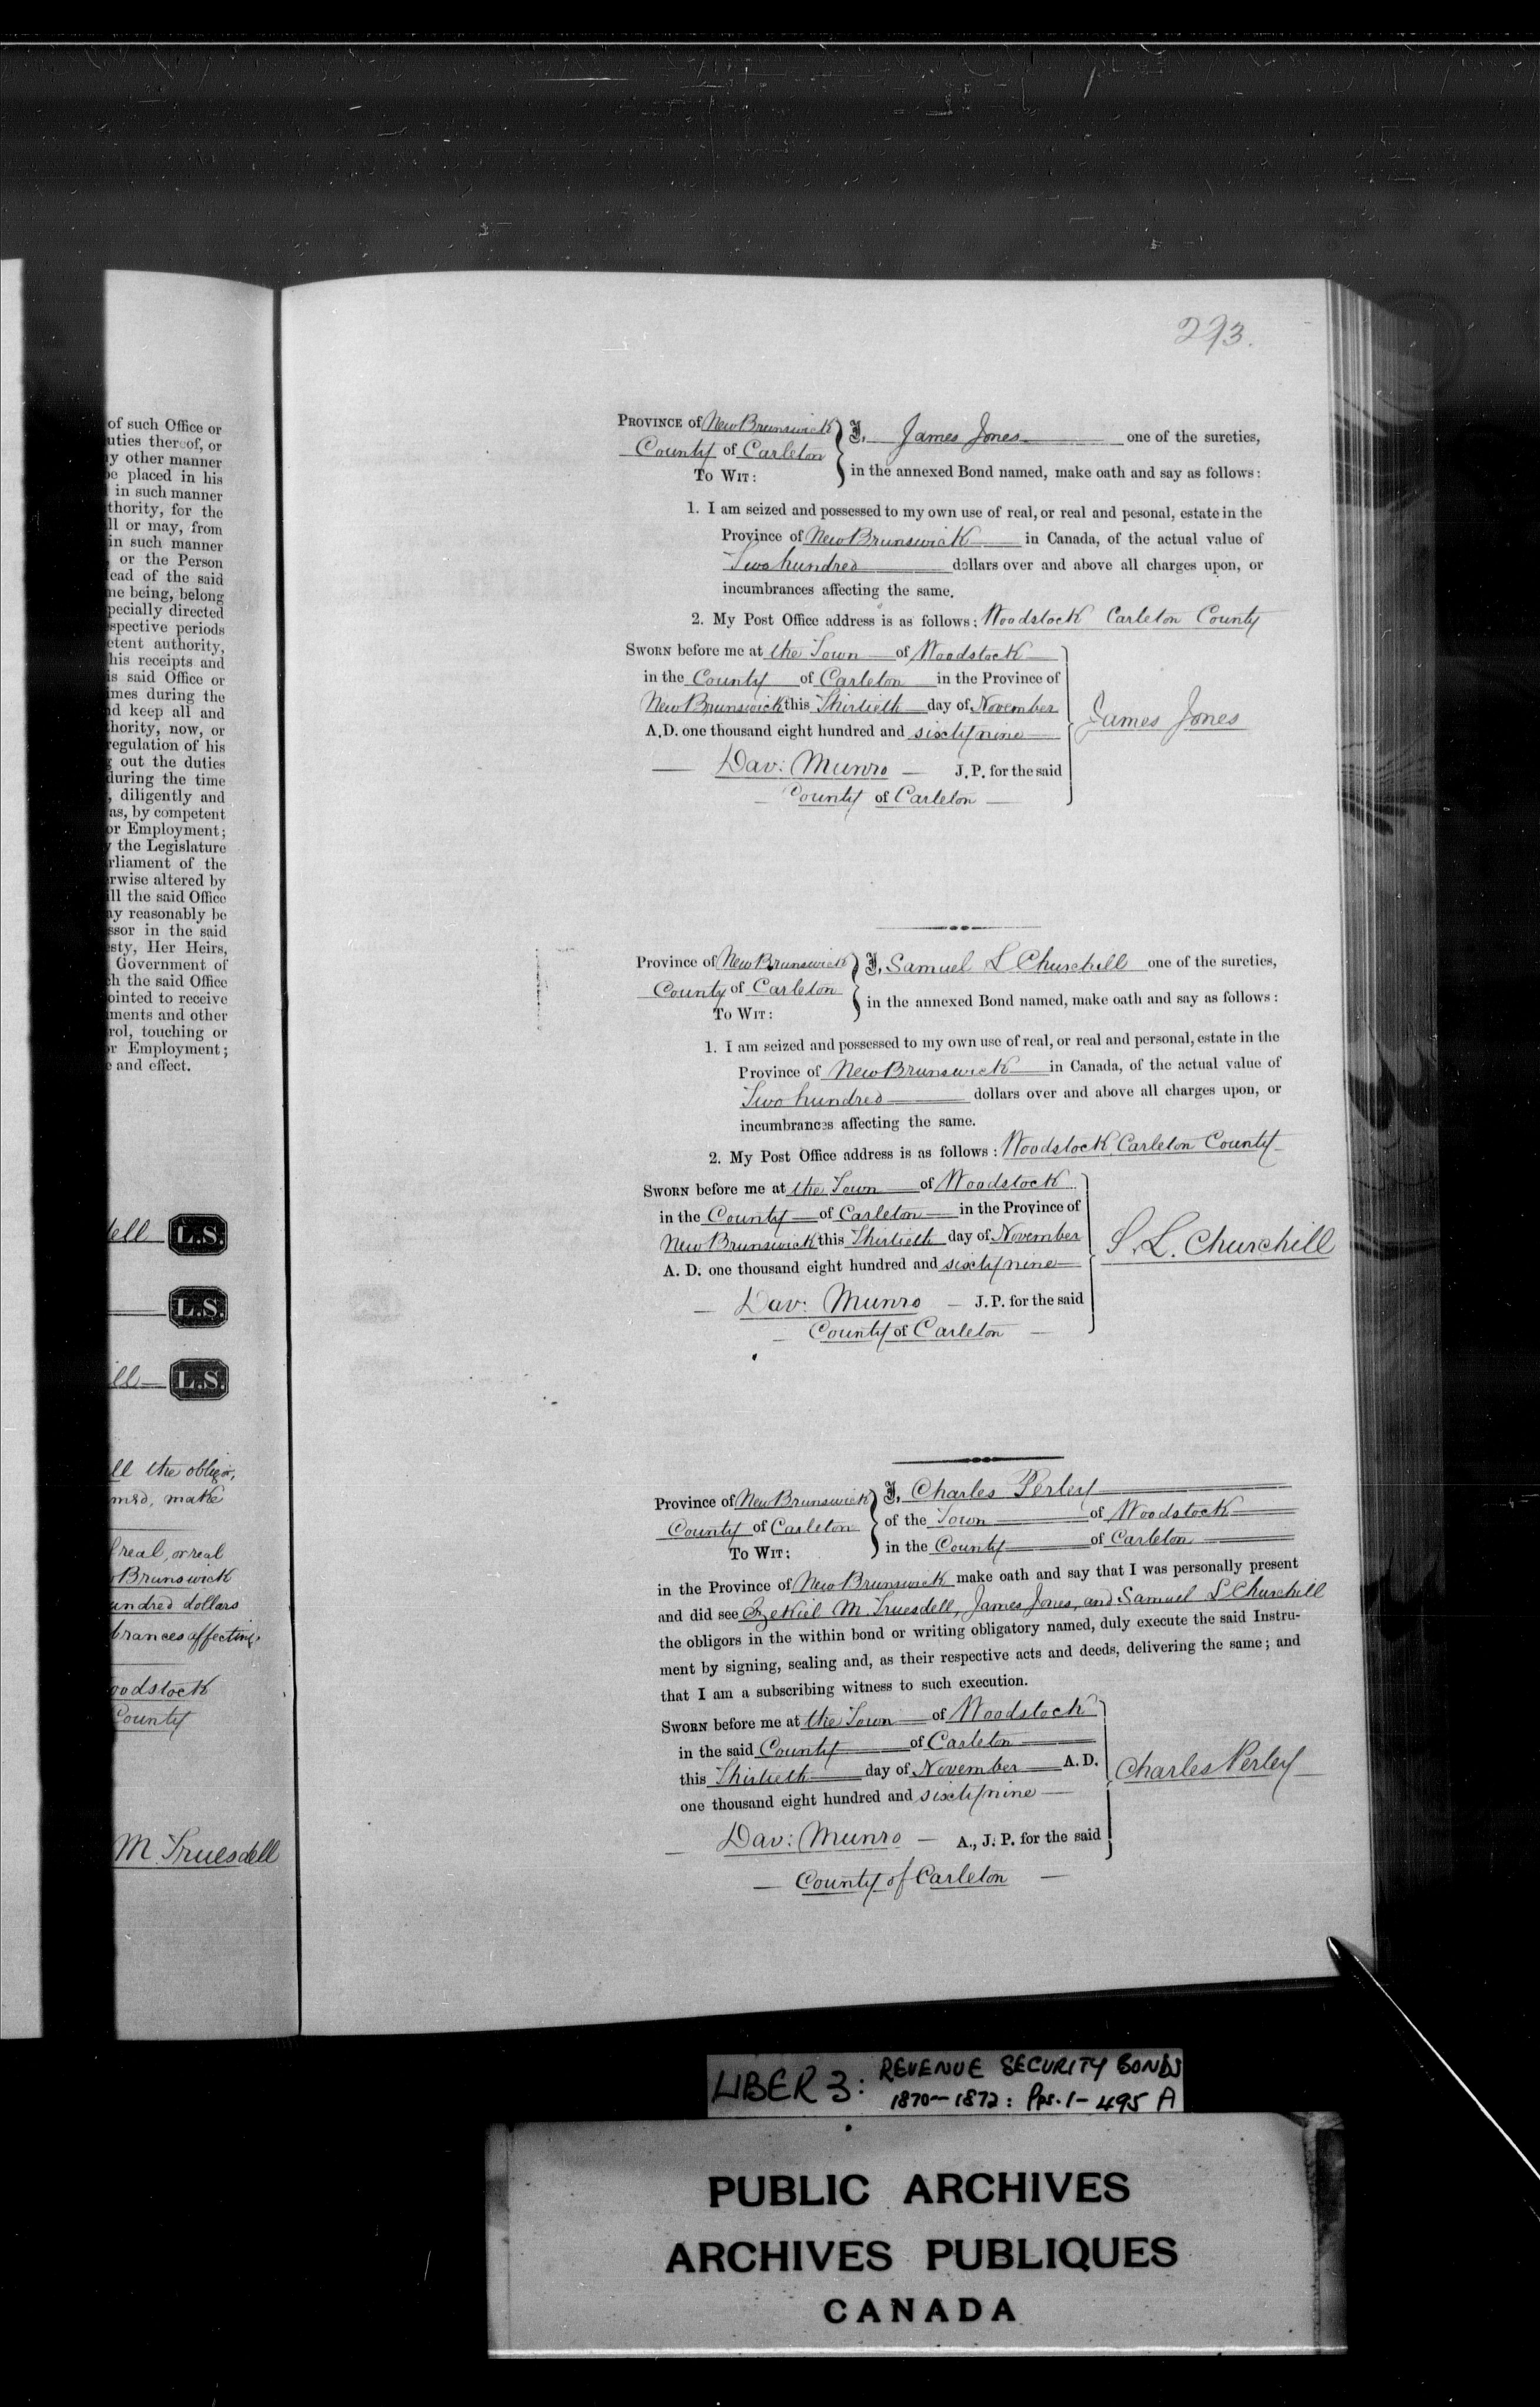 of such Office or
uties thereof, or
y other manner
e placed in his
in such manner
thority, for the
ll or may, from
in such manner
, or the Person
ead of the said
ne being, belong
pecially directed
spective periods
etent authority,
his receipts and
is said Office or
imes during the
d keep all and
hority, now, or
regulation of his
g out the duties
during the time
, diligently and
as, by competent
or Employment;
y the Legislature
rliament of the
rwise altered by
ill the said Office
ay reasonably be
ssor in the said
esty, Her Heirs,
Government of
ch the said Office
ointed to receive
ments and other
rol, touching or
r Employment;
e and effect.
dell L.S.
L.S.
ill L.S.
ll the obligor,
med, make
f real, or real
Brunswick
undred dollars
brances affecting
oodstock
County
M. Truesdell
293.
PROVINCE of New Brunswick
County of Carleton
TO WIT:
I, James Jones one of the sureties,
in the annexed Bond named, make oath and say as follows:
1. I am seized and possessed to my own use of real, or real and pesonal, estate in the
Province of New Brunswick in Canada, of the actual value of
Two hundred dollars over and above all charges upon, or
incumbrances affecting the same.
2. My Post Office address is as follows: Woodstock Carleton County
SWORN before me at the Town of Woodstock
in the County of Carleton in the Province of
New Brunswick this Thirtieth day of November
A.D. one thousand eight hundred and sixty nine
James Jones
Dav: Munro J.P. for the said
County of Carleton
Province of New Brunswick
County of Carleton
TO WIT:
I, Samuel L Churchill one of the sureties,
in the annexed Bond named, make oath and say as follows:
1. I am seized and possessed to my own use of real, or real and personal, estate in the
Province of New Brunswick in Canada, of the actual value of
Two hundred dollars over and above all charges upon, or
incumbrances affecting the same.
2. My Post Office address is as follows: Woodstock Carleton County
SWORN before me at the Town of Woodstock
in the County of Carleton in the Province of
New Brunswick this Thirtieth day of November
A. D. one thousand eight hundred and sixty nine
S. L. Churchill
Dav: Munro J.P. for the said
County of Carleton
Province of New Brunswick
County of Carleton
TO WIT:
I, Charles Perley
of the Town of Woodstock
in the County of Carleton
in the Province of New Brunswick make oath and say that I was personally present
and did see Ezekiel M. Truesdell, James Jones, and Samuel L Churchill
the obligors in the within bond or writing obligatory named, duly execute the said Instru-
ment by signing, sealing and, as their respective acts and deeds, delivering the same; and
that I am a subscribing witness to such execution.
SWORN before me at the Town of Woodstock
in the said County of Carleton
this Thirtieth day of November A.D.
one thousand eight hundred and sixty nine
Charles Perley
Dav: Munro A., J. P. for the said
County of Carleton
LIBER 3: REVENUE SECURITY BONDS
1870-1872: Pps. 1-495 A
PUBLIC ARCHIVES
ARCHIVES PUBLIQUES
CANADA